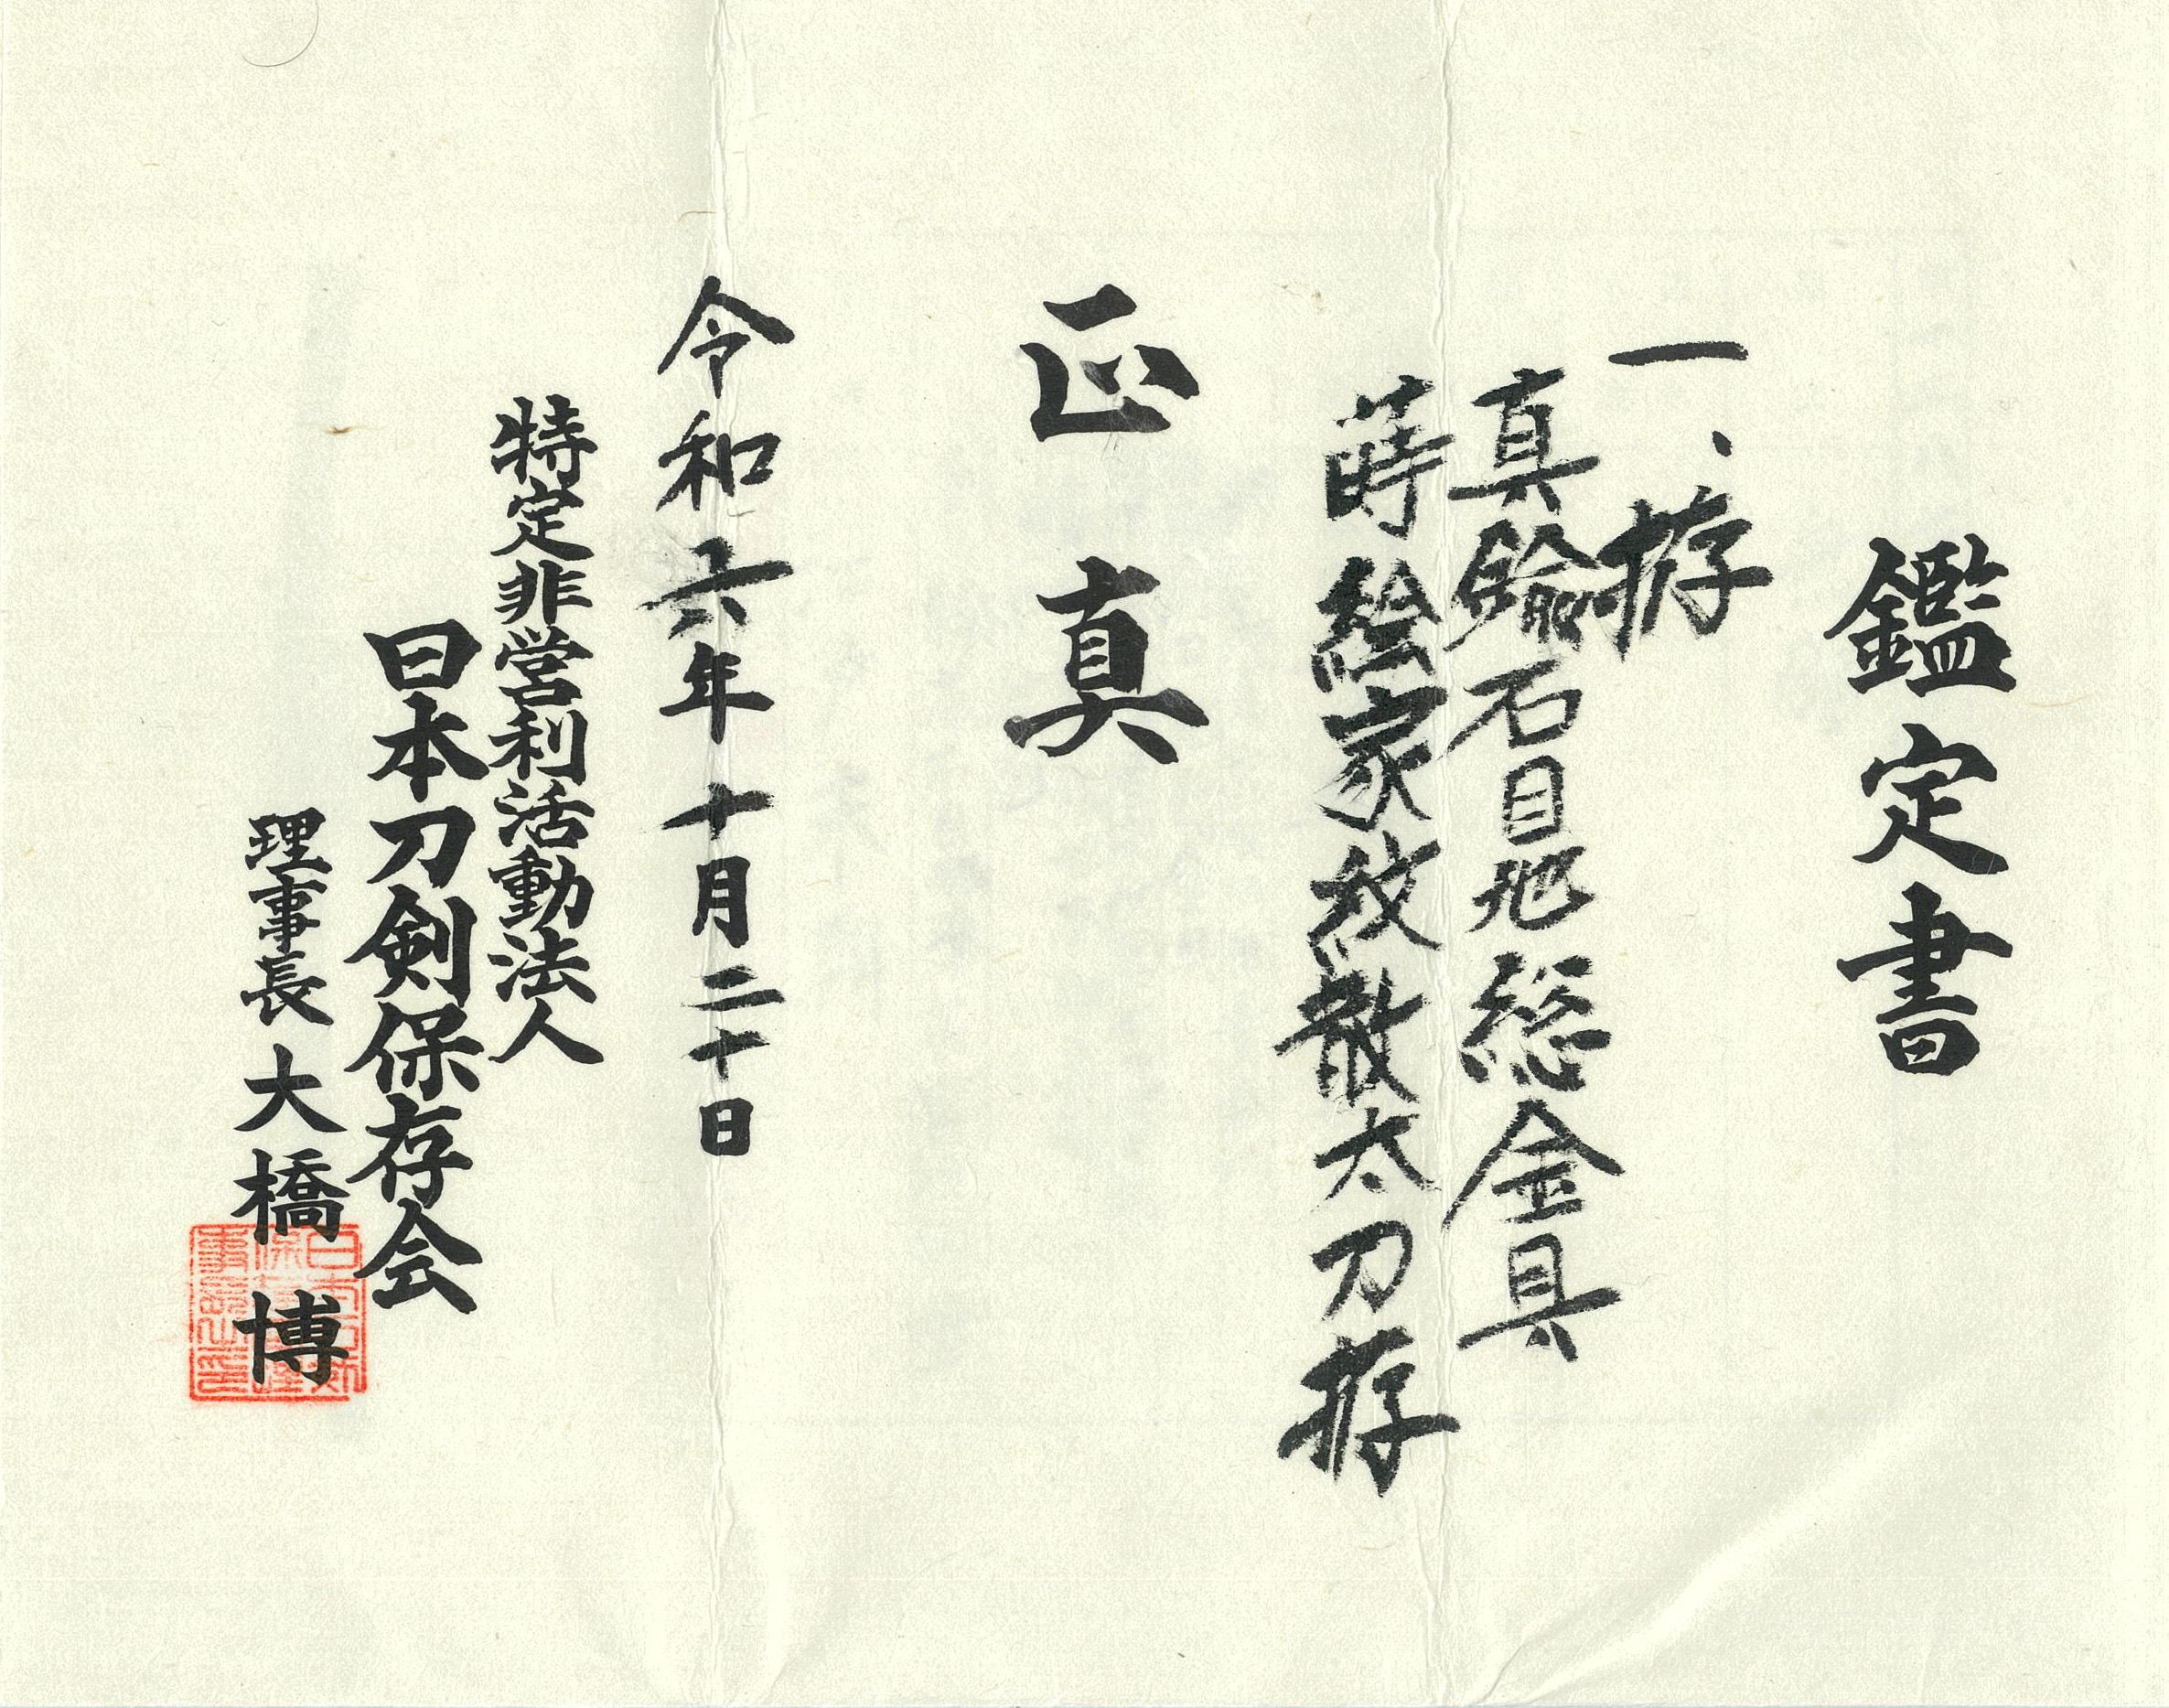 鑑定書
一、拵
真鍮石目地総金具
蒔絵家紋散太刀拵
正真
令和六年十月二十日
特定非営利活動法人
日本刀剣保存会
理事長 大橋 博